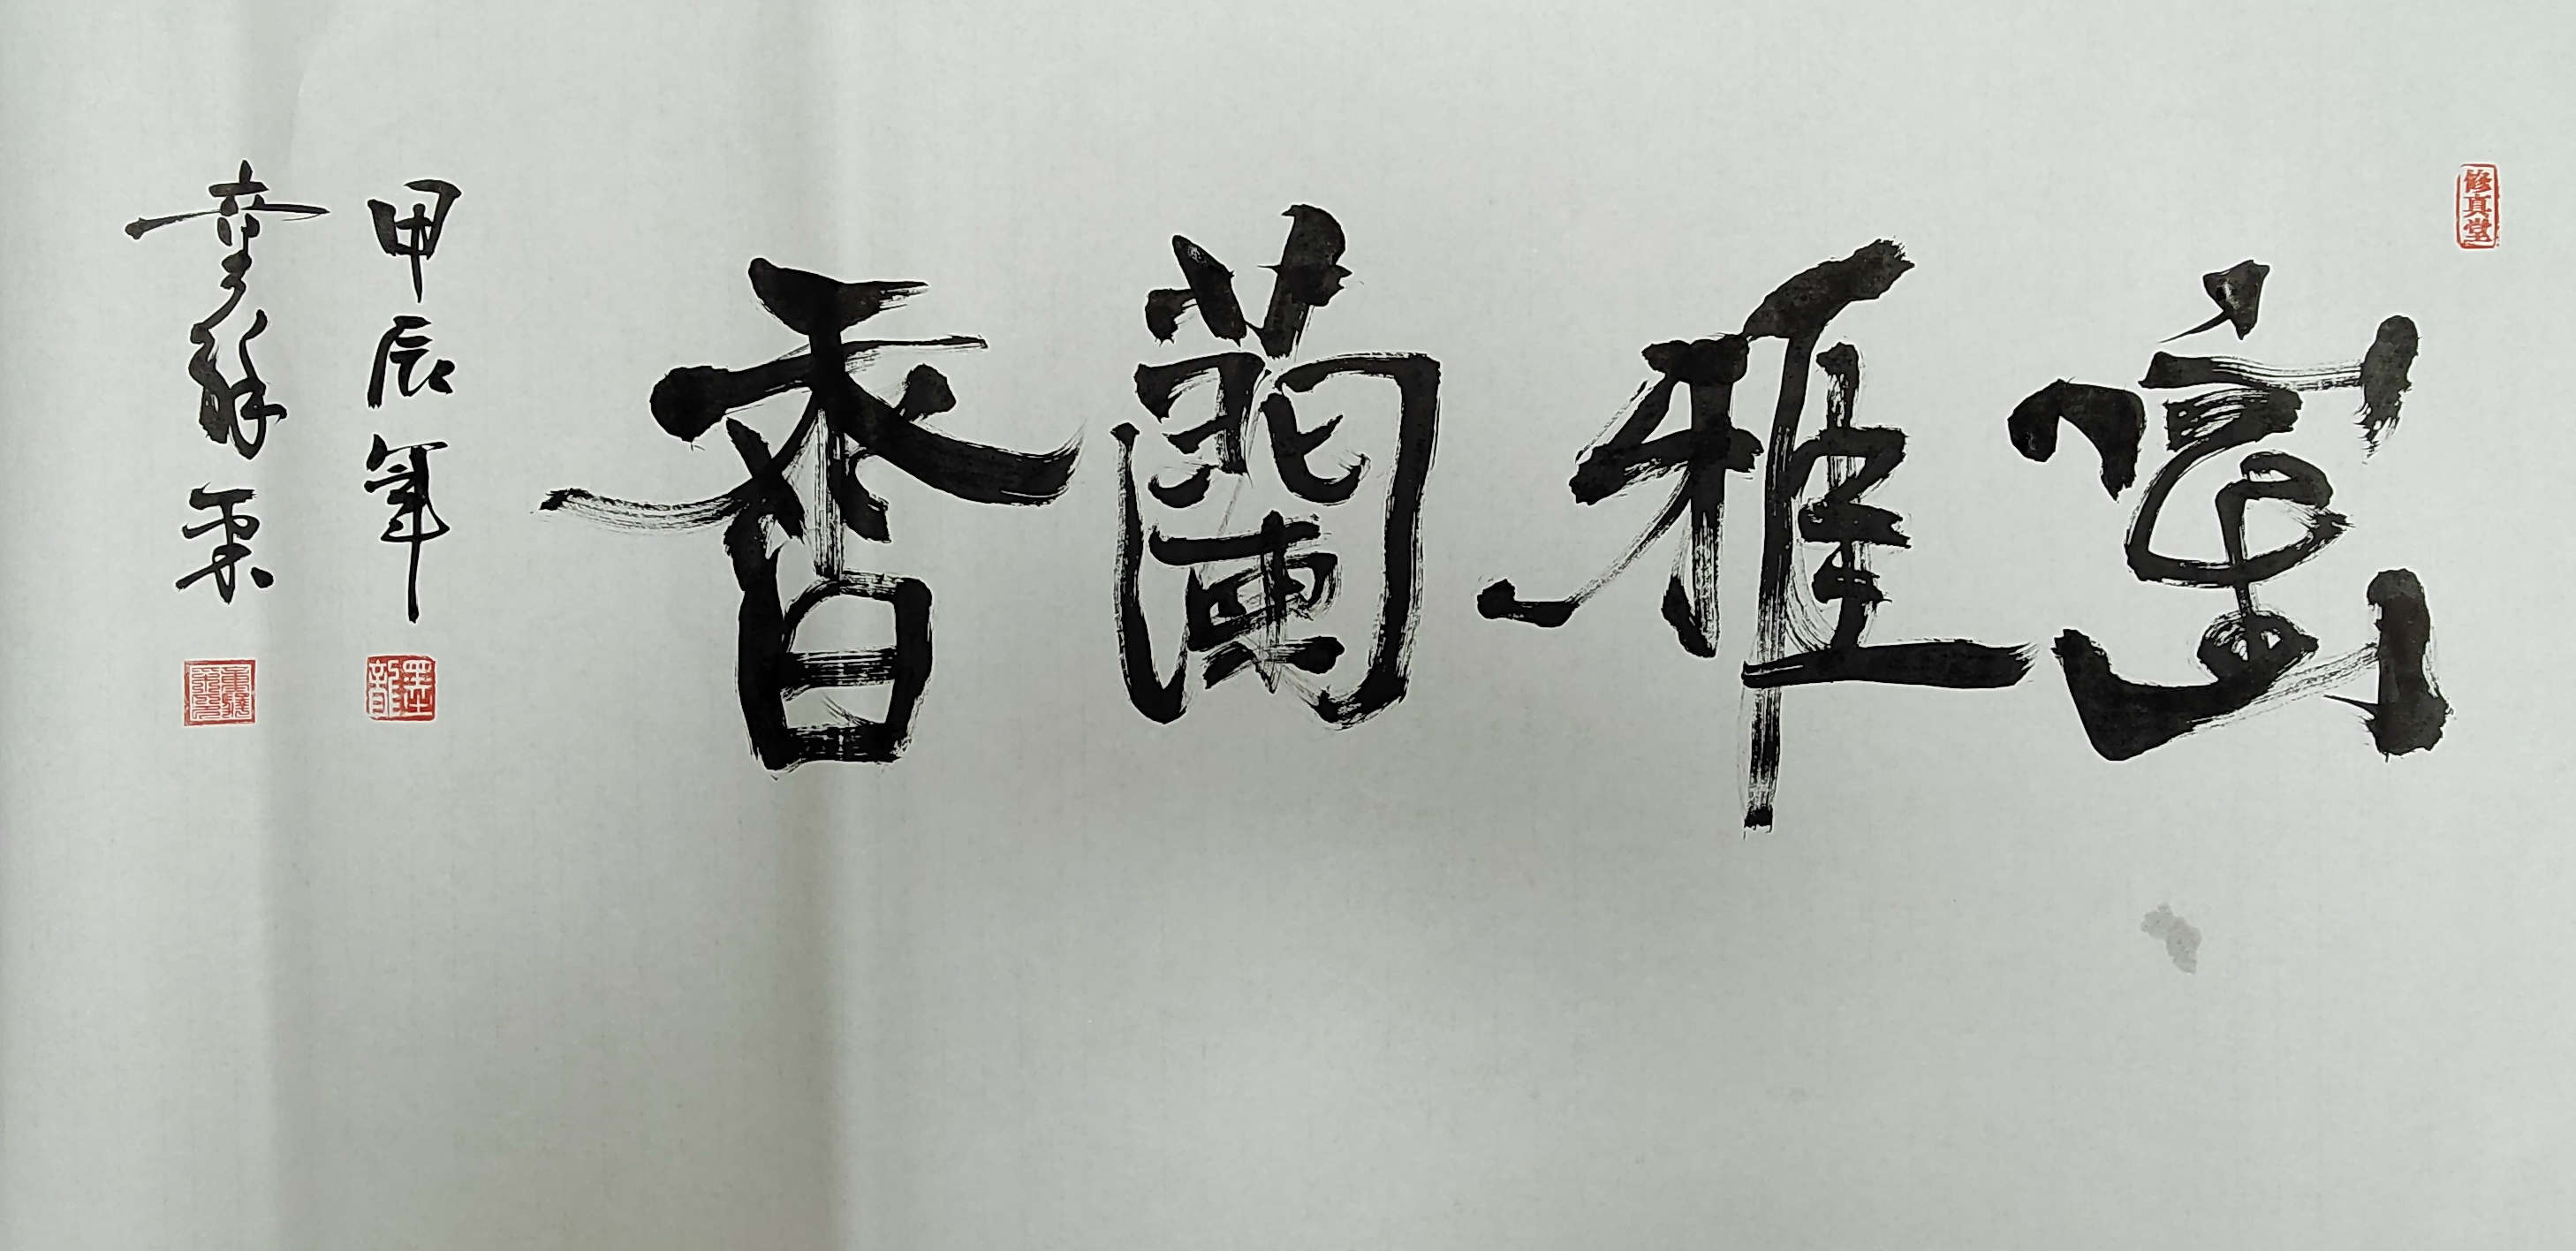 修真堂
室雅蘭香
甲辰年
墨龍